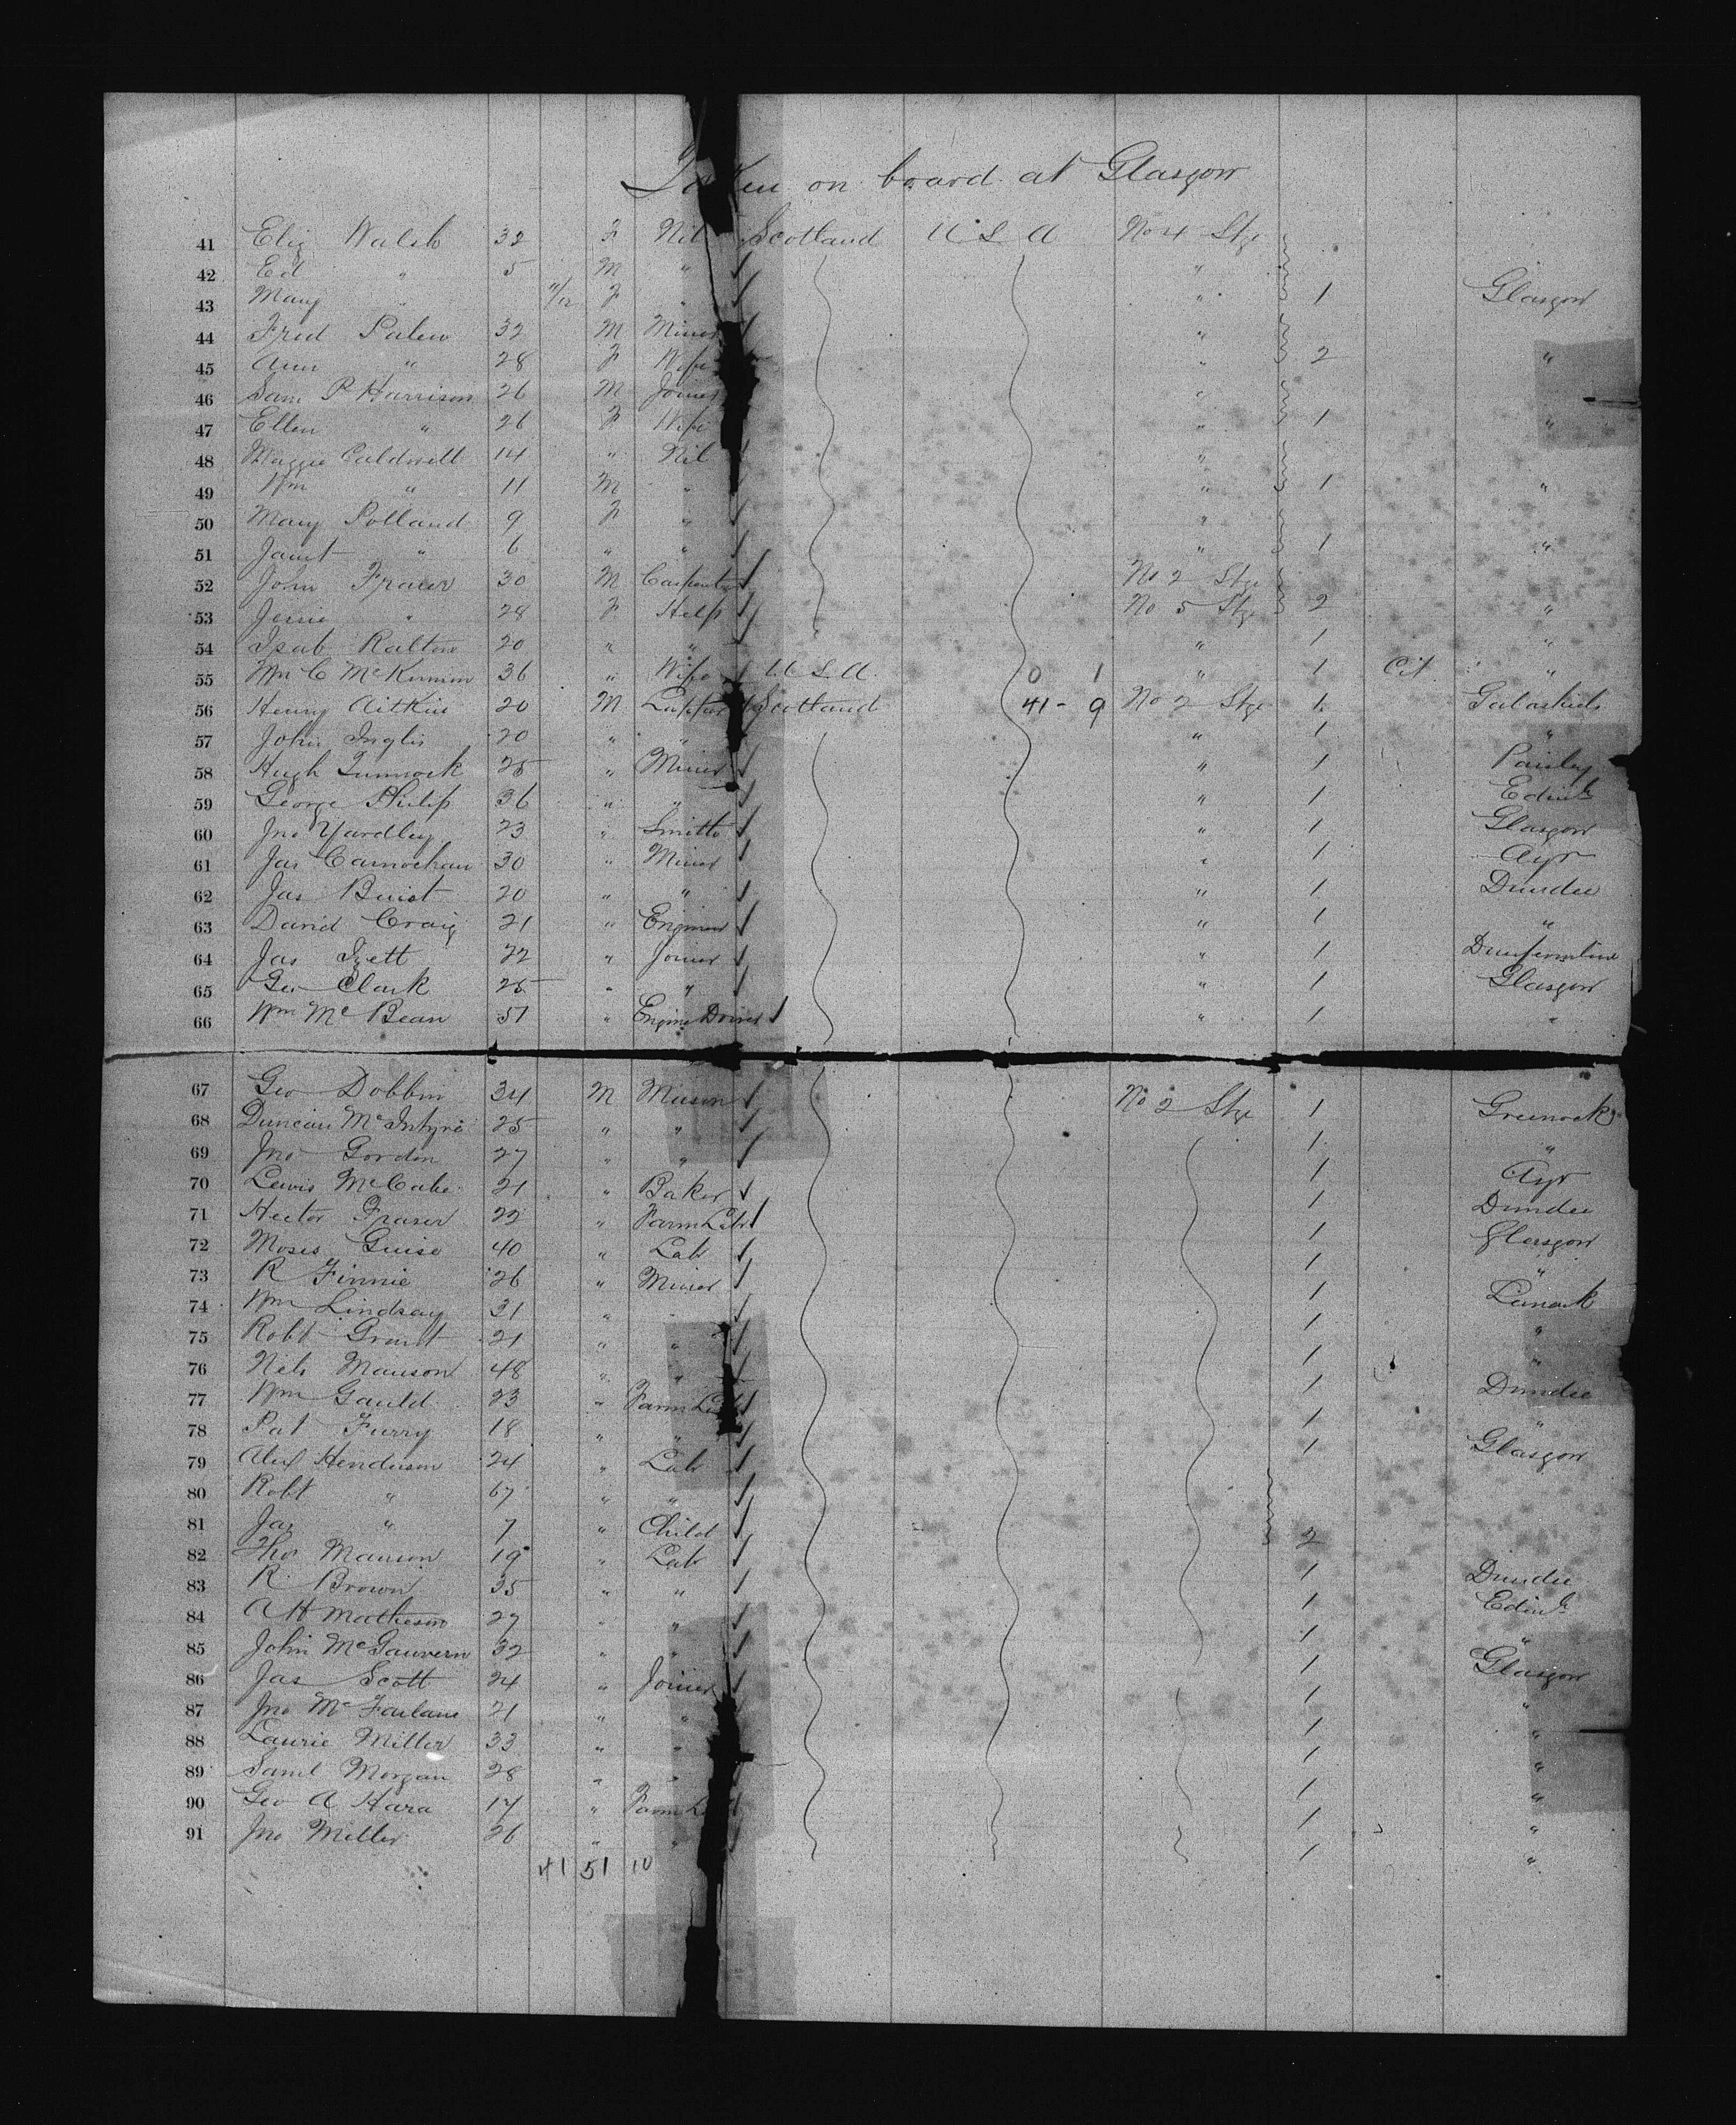 Taken on board at Glasgow
41 Eliz Walsh 32 F Nil Scotland U S A No 4 Stge
42 Ed " 5 M " "
43 Mary " 11/12 F " " 1 Glasgow
44 Fred 32 M Miner "
45 Ann " 28 F Wife " 2 "
46 Saml P Harrison 26 M Joiner "
47 Ellen " 26 F Wife " 1 "
48 Maggie Caldwell 14 " Nil "
49 Wm " 11 M " " 1 "
50 Mary Polland 9 F " "
51 Janet " 6 " " " 1 "
52 John Fraser 30 M Carpenter No 2 Stge
53 Jessie " 28 F Help No 5 Stge 2 "
54 Isab Ralton 20 " " " 1 "
55 Wm C McKinnon 36 " Wife U.S.A. 0 1 " 1 Cit "
56 Henry Aitkin 20 M Scotland 41 - 9 No 2 Stge 1 Galashiels
57 John Inglis 20 " " " 1 "
58 Hugh 25 " Miner " 1 Paisley
59 George Philip 36 " " " 1 Edinb
60 Jno Yardley 23 " Smith " 1 Glasgow
61 Jas Carnochan 30 " Miner " 1 Ayr
62 Jas Buist 20 " " " 1 Dundee
63 David Craig 21 " Engineer " 1 "
64 Jas Izett 22 " Joiner " 1 Dunfermline
65 Geo Clark 25 " " " 1 Glasgow
66 Wm McBean 51 " Engine Driver " 1 "
67 Geo Dobbin 34 M Mason No 2 Stge 1 Greenock
68 Duncan McIntyre 25 " " 1 "
69 Jno Gordon 27 " " 1 Ayr
70 Lewis McCabe 21 " Baker 1 Dundee
71 Hector Fraser 22 " Farm Labr 1 Glasgow
72 Moses Guise 40 " Labr 1 "
73 R Finnie 26 " Miner 1 Lanark
74 Wm Lindsay 31 " " 1 "
75 Robt Grant 21 " " 1 "
76 Nels Manson 48 " " 1 Dundee
77 Wm Gauld 23 " Farm Lab 1 "
78 Pat Furry 18 " " 1 Glasgow
79 Alex Henderson 24 " Labr
80 Robt " 67 " "
81 Jas " 7 " Child 2
82 Thos Manson 19 " Labr 1 Dundee
83 R Brown 35 " " 1 Edinb
84 A H Matheson 27 " " 1 "
85 John McGauvern 32 " " 1 Glasgow
86 Jas Scott 24 " Joiner 1 "
87 Jno McFarlane 21 " " 1 "
88 Laurie Miller 33 " " 1 "
89 Saml Morgan 28 " " 1 "
90 Geo A Hara 17 " Farm Lab 1 "
91 Jno Miller 26 " " 1 "
41 51 10